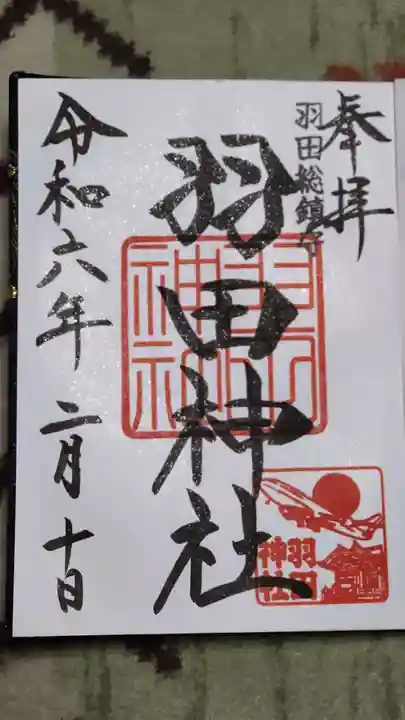 奉拝
羽田総鎮守
羽田神社
羽田神社
羽田神社
令和六年二月十日